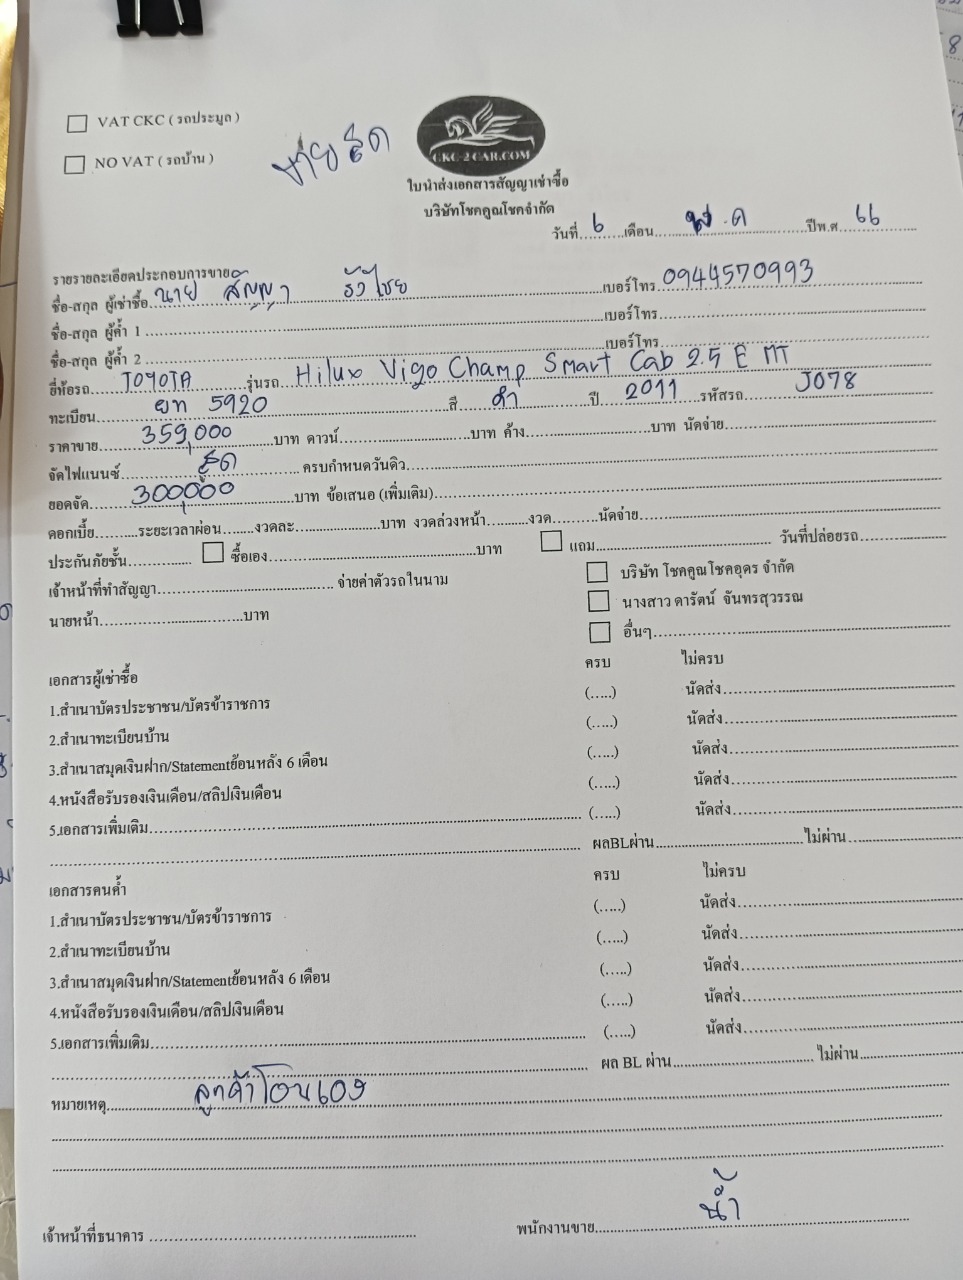 VAT CKC ( รถประมูล )
NO VAT ( รถบ้าน )
ขายสด
CKC-2CAR.COM
ใบนำส่งเอกสารสัญญาเช่าซื้อ
บริษัทโชคคูณโชคจำกัด
วันที่ 6 เดือน พ.ค ปีพ.ศ 66
รายรายละเอียดประกอบการขาย
ชื่อ-สกุล ผู้เช่าซื้อ นาย สัญญา ธงไชย เบอร์โทร 0944570993
ชื่อ-สกุล ผู้ค้ำ 1 เบอร์โทร
ชื่อ-สกุล ผู้ค้ำ 2 เบอร์โทร
ยี่ห้อรถ TOYOTA รุ่นรถ Hilux Vigo Champ Smart Cab 2.5 E MT
ทะเบียน ยท 5920 สี ดำ ปี 2011 รหัสรถ J078
ราคาขาย 359,000 บาท ดาวน์ บาท ค้าง บาท นัดจ่าย
จัดไฟแนนซ์ สด ครบกำหนดวันดิว
ยอดจัด 300,000 บาท ข้อเสนอ (เพิ่มเติม)
ดอกเบี้ย ระยะเวลาผ่อน งวดละ บาท งวดล่วงหน้า งวด นัดจ่าย
ประกันภัยชั้น ซื้อเอง บาท แถม วันที่ปล่อยรถ
เจ้าหน้าที่ทำสัญญา จ่ายค่าตัวรถในนาม บริษัท โชคคูณโชคอุดร จำกัด
นายหน้า บาท นางสาว ดารัตน์ จันทรสุวรรณ
อื่นๆ
เอกสารผู้เช่าซื้อ ครบ ไม่ครบ
1.สำเนาบัตรประชาชน/บัตรข้าราชการ (.....) นัดส่ง
2.สำเนาทะเบียนบ้าน (.....) นัดส่ง
3.สำเนาสมุดเงินฝาก/Statementย้อนหลัง 6 เดือน (.....) นัดส่ง
4.หนังสือรับรองเงินเดือน/สลิปเงินเดือน (.....) นัดส่ง
5.เอกสารเพิ่มเติม (.....) นัดส่ง
ผลBLผ่าน ไม่ผ่าน
เอกสารคนค้ำ ครบ ไม่ครบ
1.สำเนาบัตรประชาชน/บัตรข้าราชการ (.....) นัดส่ง
2.สำเนาทะเบียนบ้าน (.....) นัดส่ง
3.สำเนาสมุดเงินฝาก/Statementย้อนหลัง 6 เดือน (.....) นัดส่ง
4.หนังสือรับรองเงินเดือน/สลิปเงินเดือน (.....) นัดส่ง
5.เอกสารเพิ่มเติม (.....) นัดส่ง
ผล BL ผ่าน ไม่ผ่าน
หมายเหตุ ลูกค้าโอนเอง
เจ้าหน้าที่ธนาคาร พนักงานขาย น้ำ